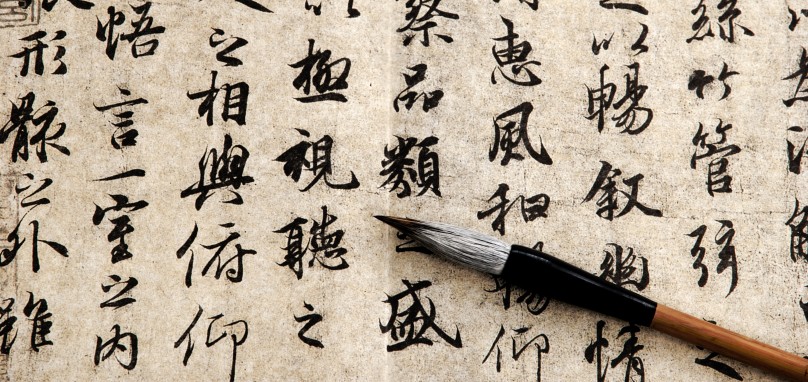 絲竹管弦之
以暢叙幽情
惠風和暢仰
察品類之盛
以極視聽之
之相與俯仰
悟言一室之内
形骸之外雖